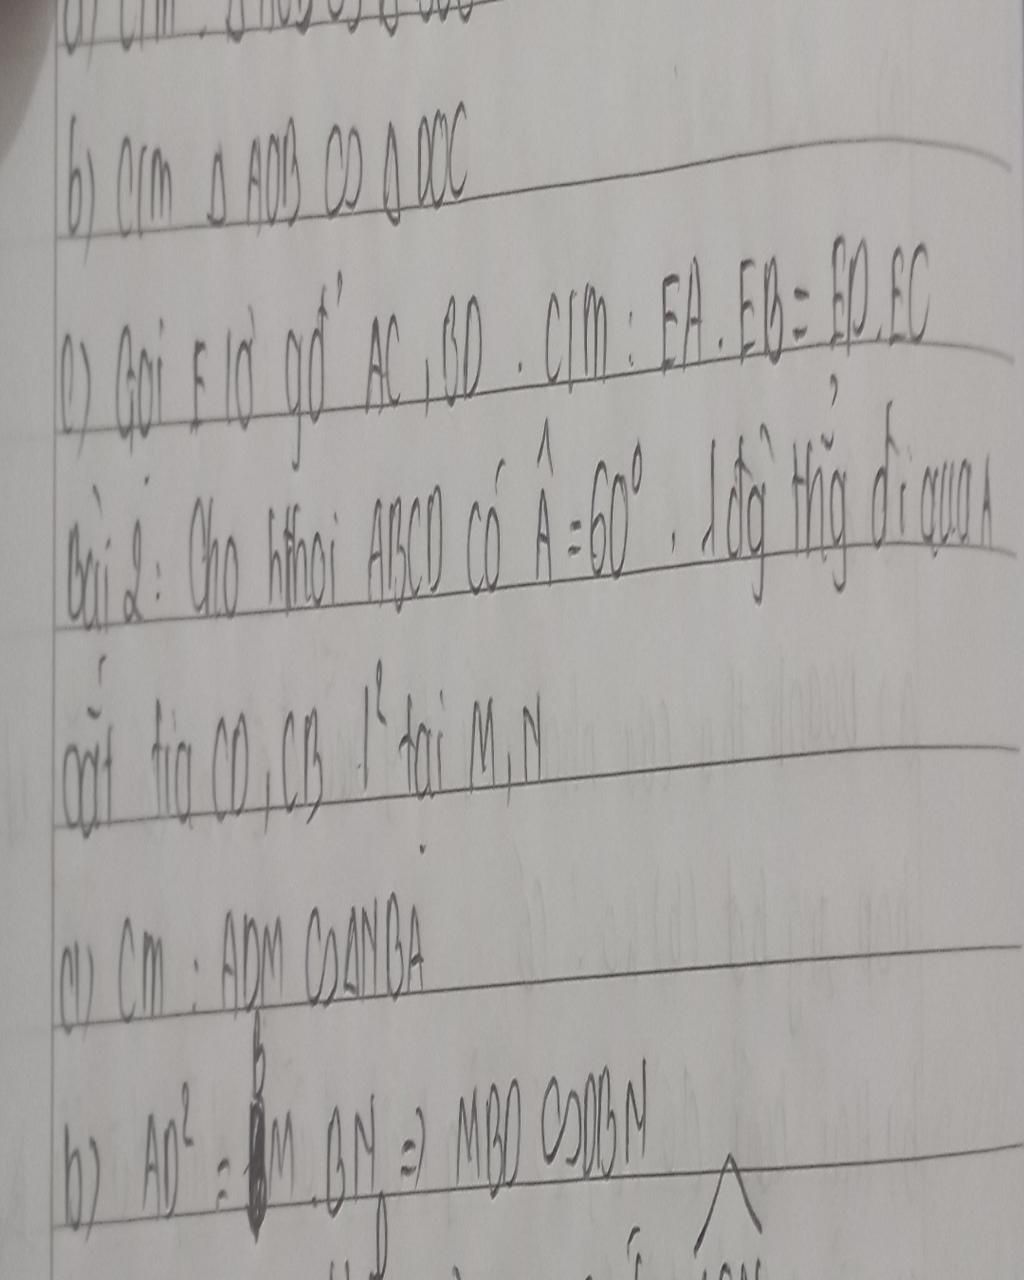 b) C/m Δ AOB ∽ Δ DOC
c) Gọi E là gđ AC, BD. C/m: EA. EB = ED. EC
Bài 2: Cho hthoi ABCD có Â = 60⁰. 1 đg thẳng đi qua A
cắt tia CD, CB l² tại M, N
a) Cm: ADM ∽ ΔNBA
b) AD² = M. BN => MBD ∽ DBN